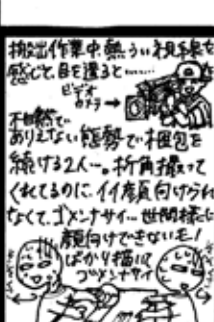 搬出作業中、熱うい視線を
感じて、目を遣ると……
ビデオ
カメラ→
不自然で
ありえない態勢で梱包を
続ける2人…。折角撮って
くれてるのに、イイ顔向けられ
なくて、ゴメンナサイ…世間様に
顔向けできないモノ
ばかり描いて
ゴメンナサイ